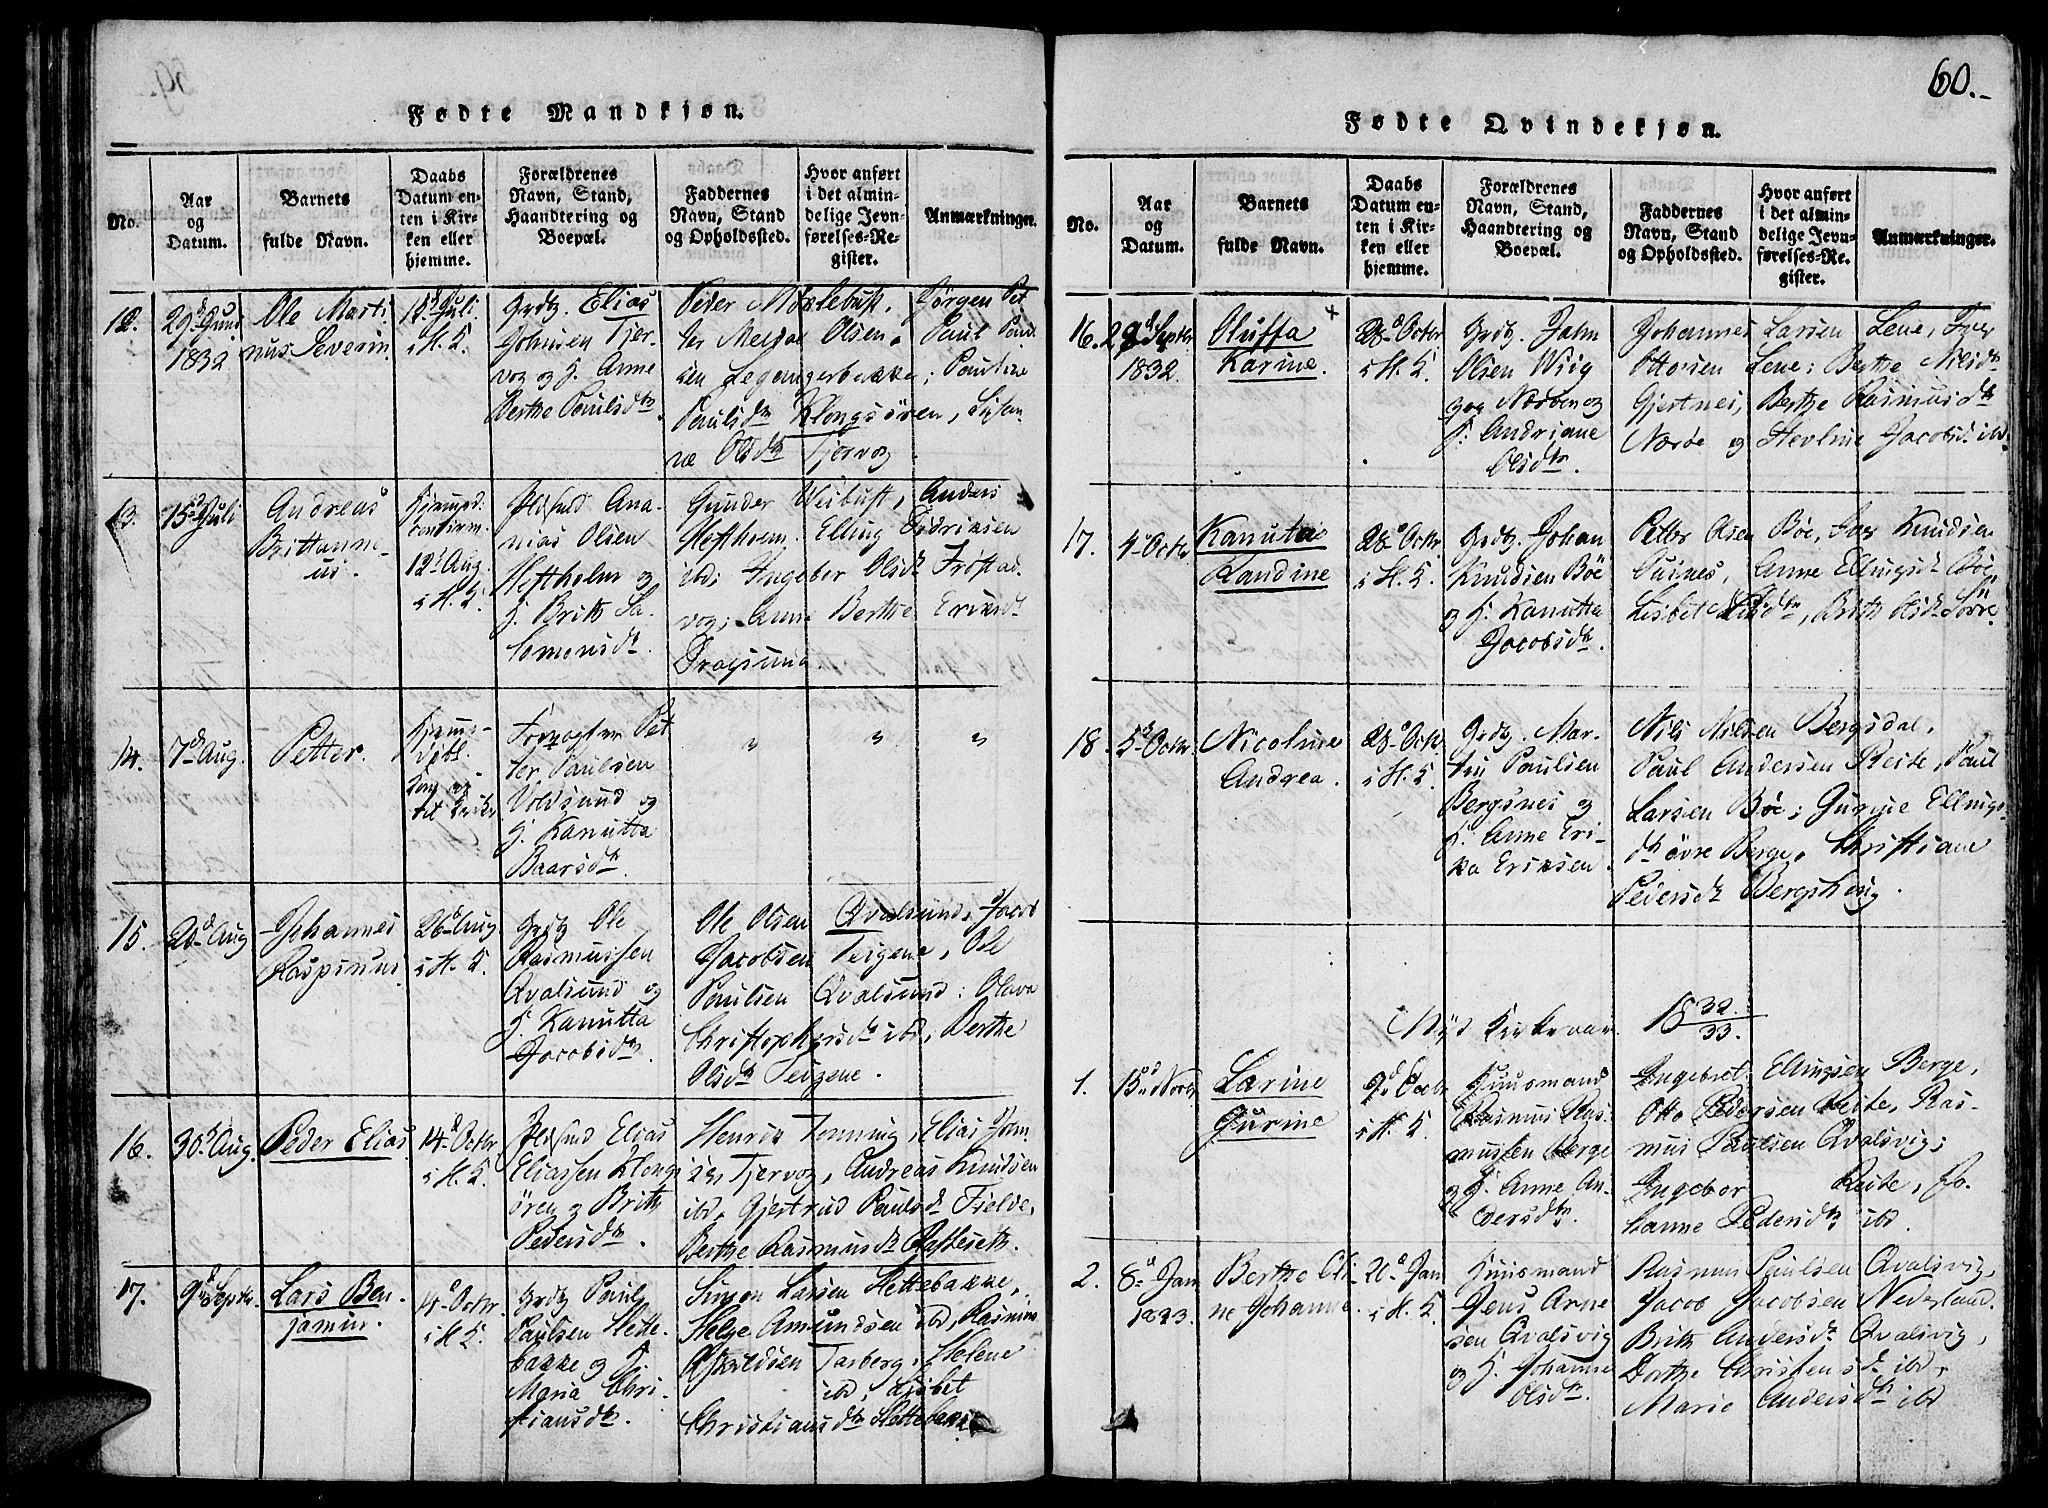 60.
Fødte Mandkjøn.
No.
Aar og Datum.
Barnets fulde Navn.
Daabs Datum enten i Kirken eller hjemme.
Forældrenes Navn, Stand, Haandtering og Boepæl.
Faddernes Navn, Stand og Opholdssted.
Hvor anført i det almindelige Jevnførelses-Register.
Anmærkninger.
12.
29d Juni
1832
Ole Marti
nus Severin
15d Juli
i H. K.
Grdbr. Elias
Johnsen Tjer-
vog og H. Anne
Berthe Paulsdtr.
Peder Møklebust, Jørgen Pet
ter Meldal Olsen, Paul Poul
sen Legangerbakke; Pauline
Paulsdtr Klongsören, Sylan
næ Olsdtr Tjervog.
13.
15d Juli
Andreas
Brittanne-
us.
Hjemmed.
confirm.
12d Aug.
i H. K.
Ana-
nias Olsen
Heftholm og
H. Brith Sa-
lomonsdtr.
Gunder Weibust, Anders
Heftholm. Elling Didriksen
ibd; Ingeber Olsdtr Frøstad-
vog; Anne Berthe Eriksdtr
Dragsund.
14.
7d Aug.
Petter.
Forpagter Pet
ter Paulsen
Voldsund og
H. Kanutta
Baarsdtr.
" " "
15.
20d Aug
Johannes
Raspinus
26d Aug
i H. K.
Grdbr Ole
Rasmussen
Qvalsund og
H. Kanutta
Jacobsdtr.
Ole Olsen Qvalsund, Jacob
Jacobsen Teigene, Ole
Paulsen Qvalsund: Olava
Christophersdtr ibd, Berthe
Olsdtr Teigene.
16.
30d Aug.
Peder Elias
14d Octbr
i H. K.
Elias
Eliassen Klongs
ören og Brith
Pedersdtr.
Henrik Tenning, Elias John
sen Tjervog, Andreas Knudsen
ibd. Gjertrud Paulsdtr Fielde,
Berthe Rasmusdtr Rafteseth.
17.
9d Septbr.
Lars Ben-
jamin.
14d Octbr
i H. K.
Grdbr Paul
Paulsen Slette-
bakke og H.
Maria Chri-
stiansdtr.
Simon Larsen Slettebakke,
Helge Amundsen ibd, Rasmus
Askildsen Tarberg, Helene
ibd, Lisbet
Christiansdtr Slettebakk
Fødte Qvindekjøn.
No.
Aar og Datum.
Barnets fulde Navn.
Daabs Datum enten i Kirken eller hjemme.
Forældrenes Navn, Stand, Haandtering og Boepæl.
Faddernes Navn, Stand og Opholdssted.
Hvor anført i det almindelige Jevnførelses-Register.
Anmærkninger.
16.
22d Septbr
1832.
Oluffa
Karine.
28d Octbr
i H. K.
Grdbr. John
Olsen Wiig
gog Nærøen og
H. Andriane
Olsdtr.
Johannes Larsen Lene, Iver
Ottersen Lene; Berthe Nilsdtr
Gjertnes, Berthe Rasmusdtr
Nærøe og Stevline Jacobsdtr ibd.
17.
4d Octbr
Kanuta
Randine
28d Octbr
i H. K.
Grdbr. Johan
Knudsen Bøe
og H. Kanutta
Jacobsdtr.
Petter Olsen Bøe, Iver Knudsen
Durnes, Anne Ellingsdtr Bøe
Lisbet ibd, Brith Olsdtr Søvre
18.
5d Octbr.
Nicoline
Andrea.
28d Octbr
i H. K.
Grdbr. Mar-
tin Paulsen
Bergsnes og
H. Anne Eri-
ka Eriksen.
Nils Nilsen Bergsdal,
Paul Andersen Reite, Paul
Larsen Bøe; Gurine Ellings-
dtr øvre Berge, Christiane
Pedersdtr Bergshoug.
Nyd Kirkeaar. 18 32/33.
1.
15d Novbr
Larine
Gurine
9d Decbr
i H. K.
Huusmand
Rasmus Ras-
mussen Berge
og H. Anne An-
dersdtr.
Ingebret Ellingsen Berge,
Otto Pedersen Reite, Ras-
mus Paulsen Qvalsvig;
Ingebor Reite, Jo-
hanne Pedersdtr ibd.
2.
8d Jan
1833.
Berthe Oli-
ne Johanne.
20d Jan
i H. K.
Huusmand
Jens Arne
sen Qvalsvig
og H. Johanne
Olsdtr.
Rasmus Paulsen Qvalsvig,
Jacob Jacobsen Nederland.
Brith Andersdtr Qvalsvig,
Dorthe Christensdtr ibd,
Marie Andersdtr ibd